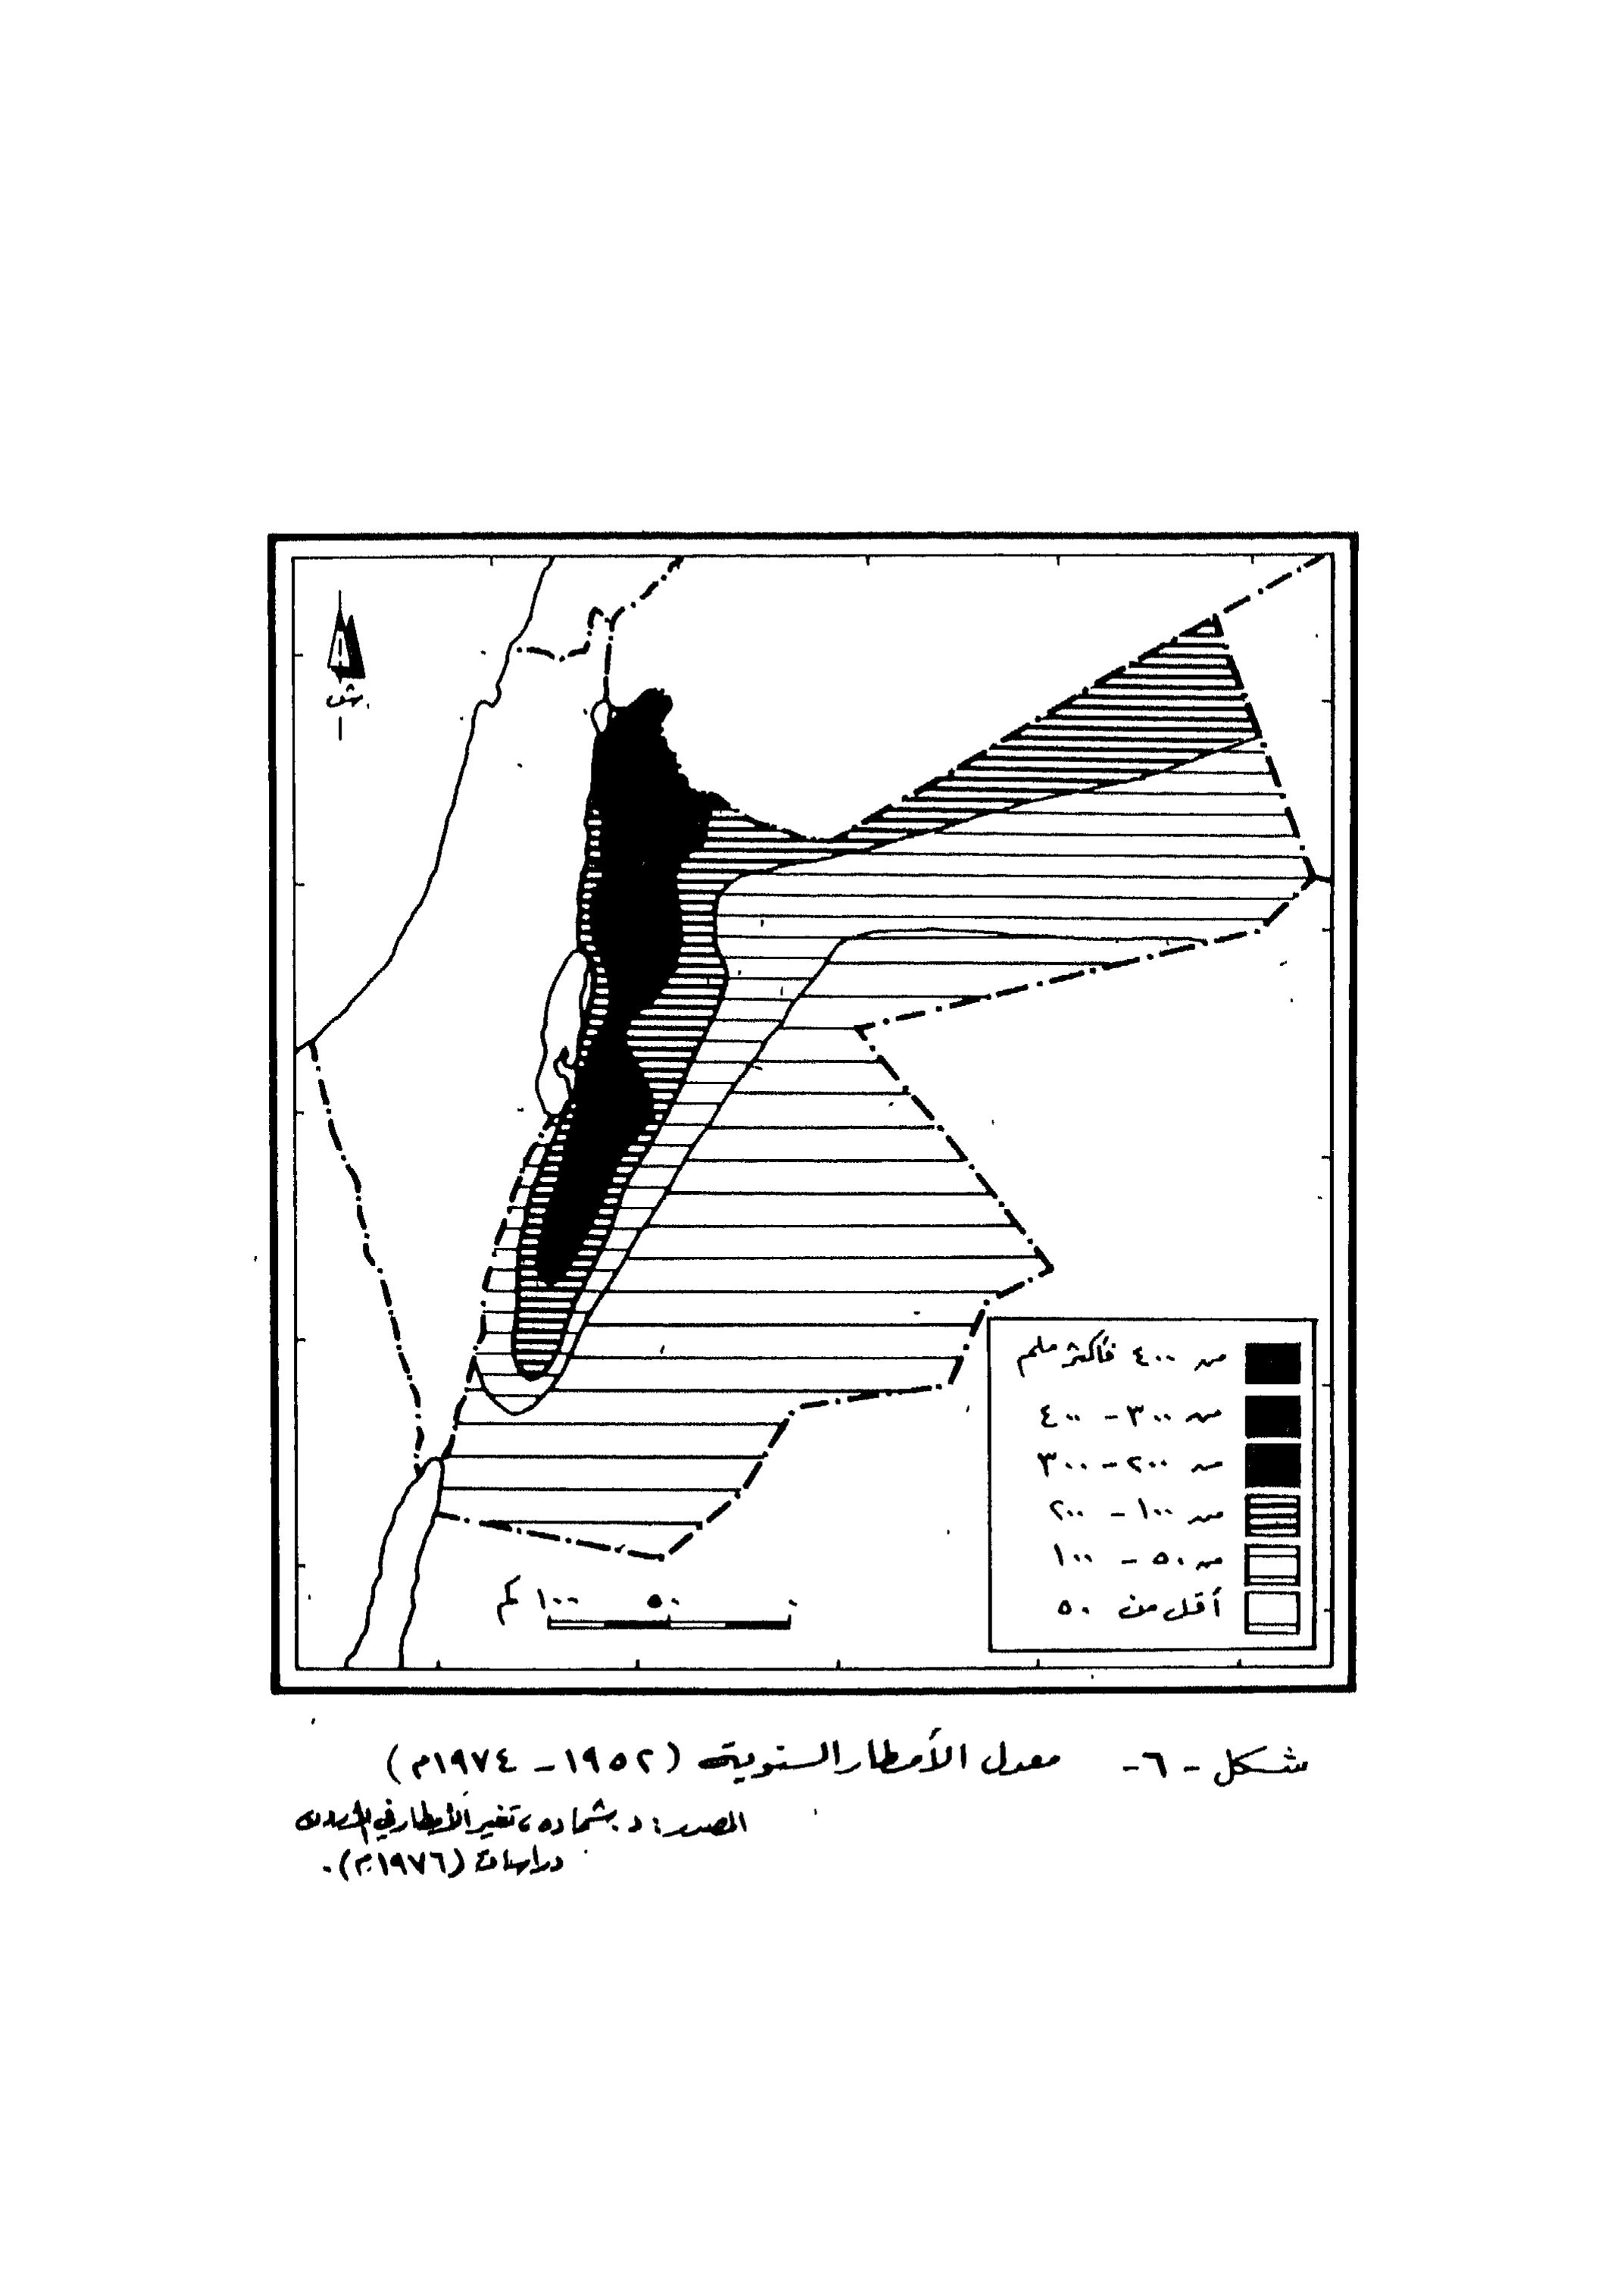 ش
من ٤٠٠ فأكثر ملم
من ٣٠٠ - ٤٠٠
من ٢٠٠ - ٣٠٠
من ١٠٠ - ٢٠٠
من ٥٠ - ١٠٠
أقل من ٥٠
١٠٠ كم ٥٠ ٠
شكل - ٦ - معدل الأمطار السنوية (١٩٥٢ - ١٩٧٤م)
المصدر: د. شحاده، تغير الأمطار في الأردن
دراسات (١٩٧٦م).